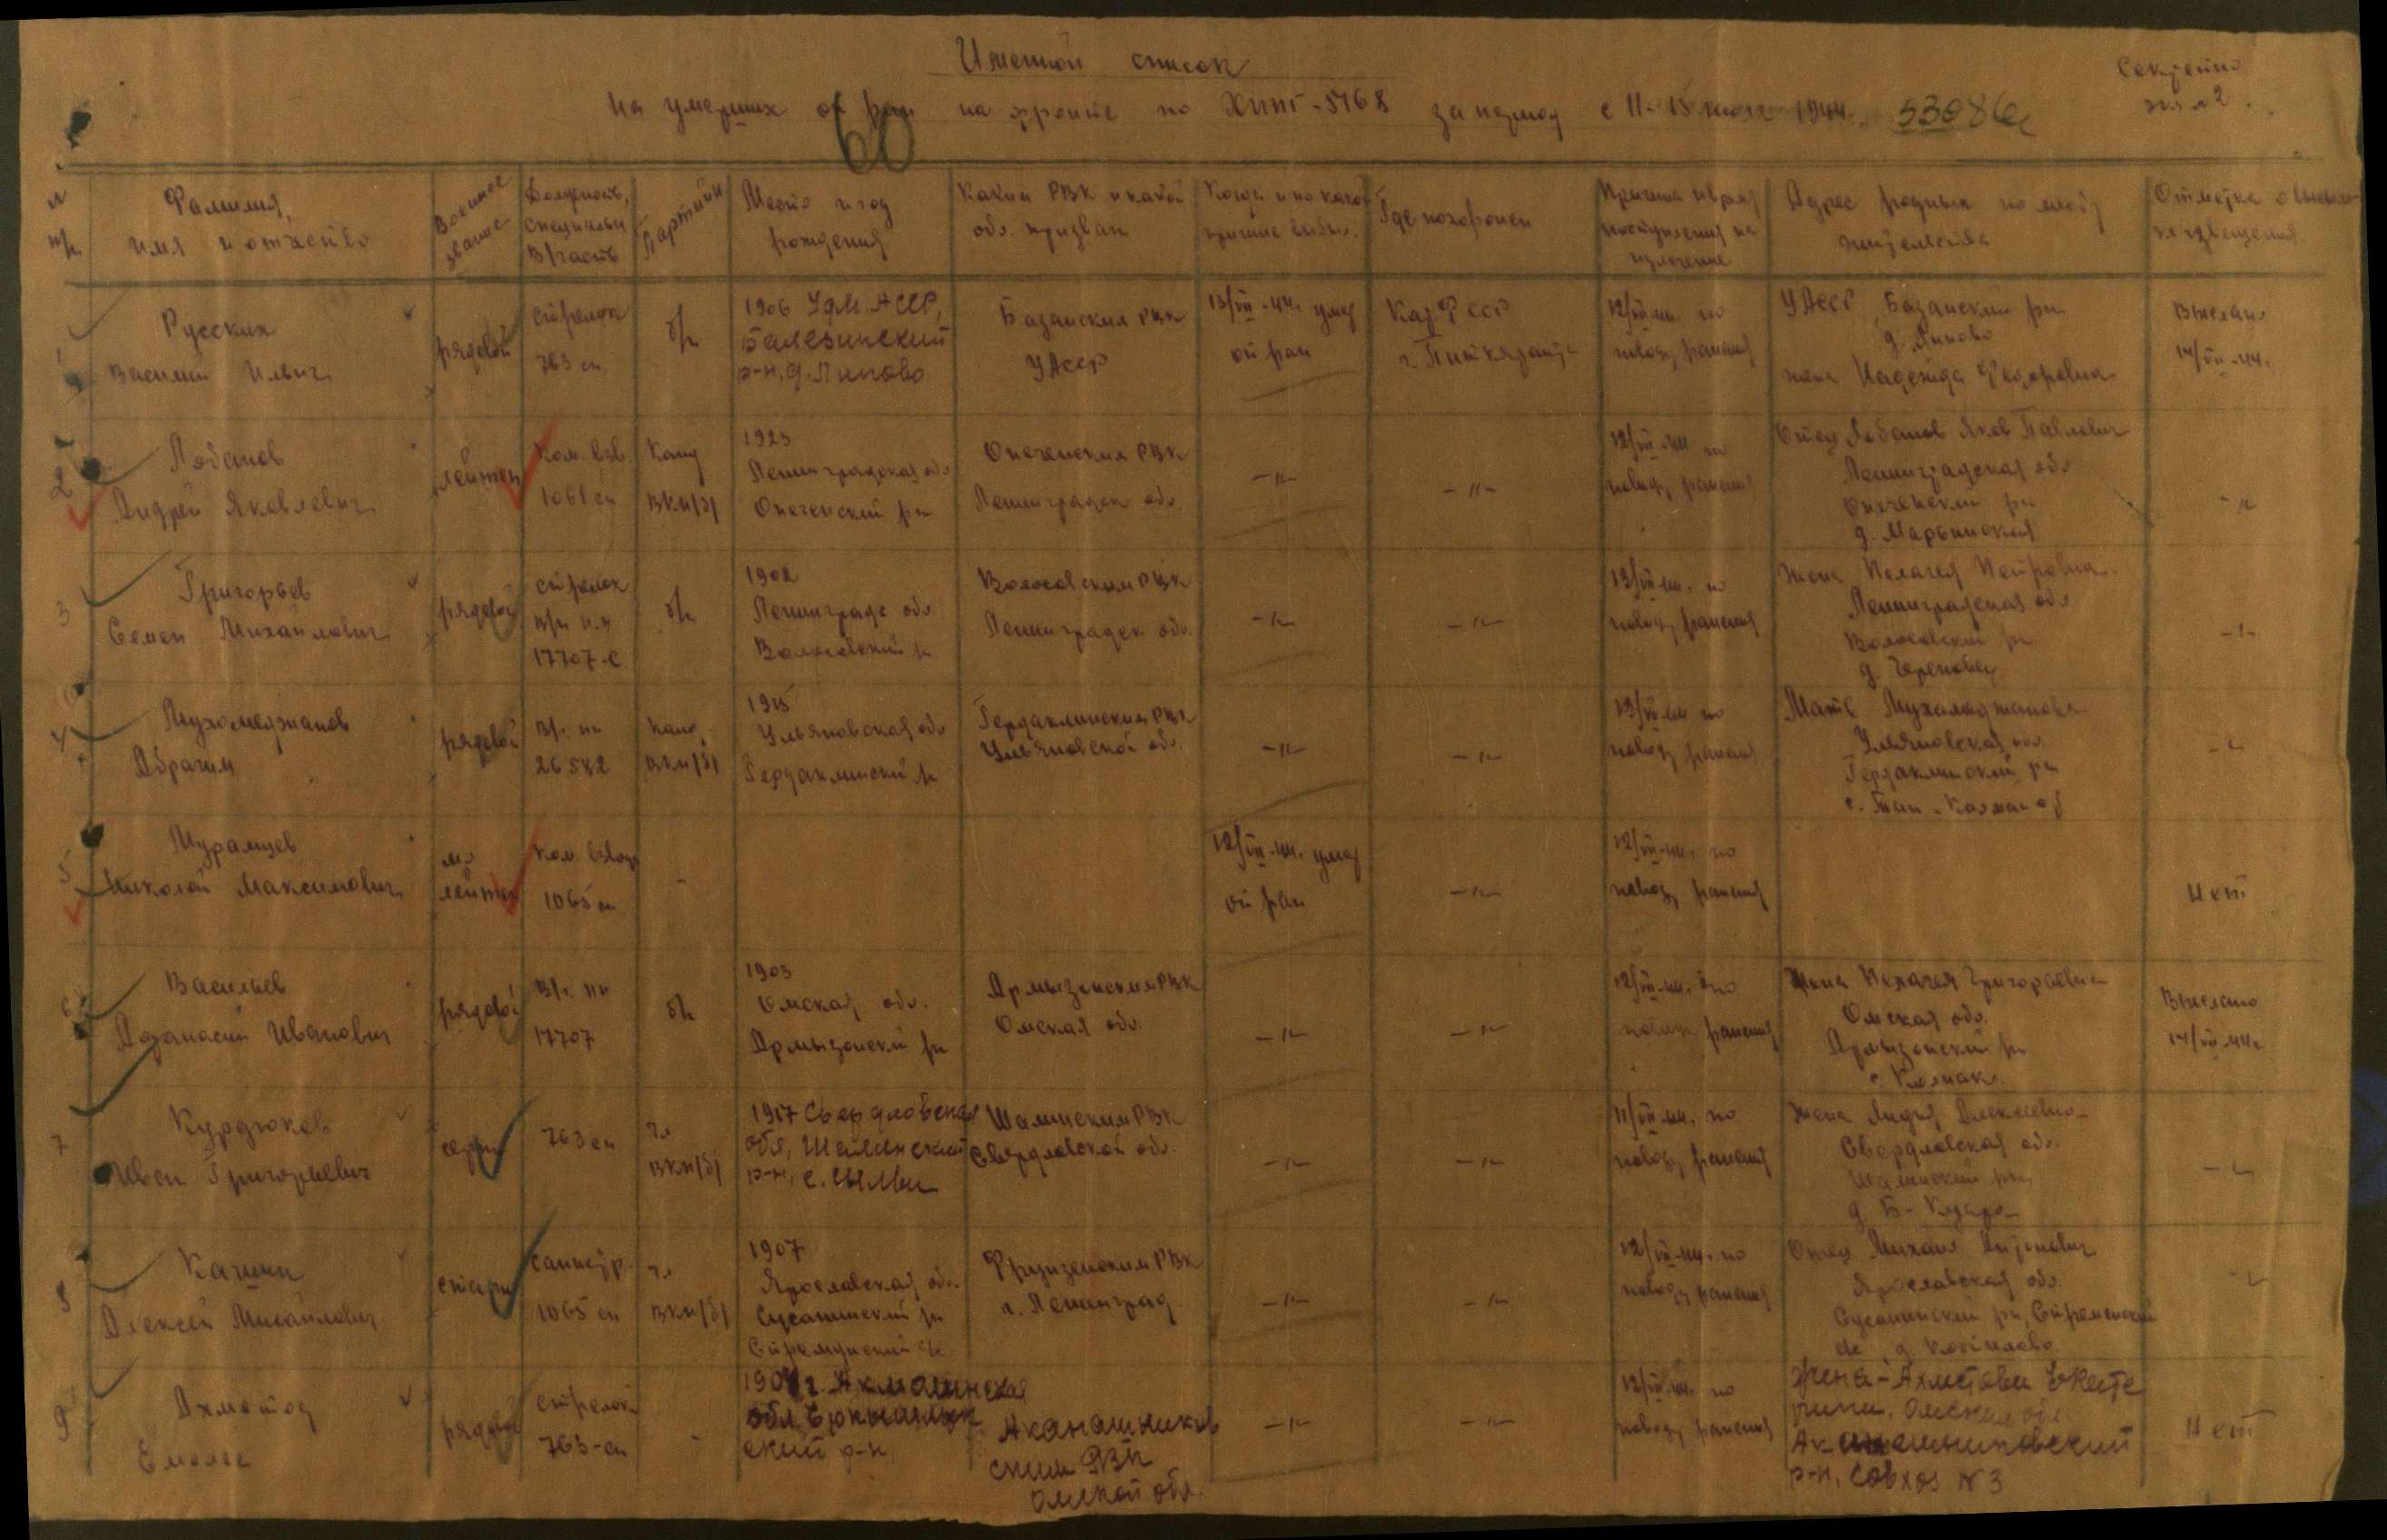 Именной список
Секретно
экз №2.
на умерших от ран на фронте по ХППГ-5768 за период с 11-15 июля 1944. 53086с
60
№ п/п
Фамилия, имя и отчество
Военное звание
Должность, специальн. В/часть
Партийн
Место и год рождения
Каким РВК и какой обл. призван
Когда и по какой причине выбыл.
Где похоронен
Причина и время поступления на излечение
Адрес родных по месту жительства
Отметка о высылке извещения
1
Русских
Василий Ильич
рядовой
стрелок
763 сп
б/п
1906 Удм. АССР,
Балезинский
р-н, д. Липово
Базанским РВК
УАССР
13/VII-44. умер
от ран
Кар. Ф ССР
г. Питкяранта
12/VII-44. по
поводу ранения
УАССР Базанский р-н
д. Липово
жена Надежда Федоровна
Выслано
14/VII-44.
2
Лобанов
Андрей Яковлевич
лейтен
Ком. взв.
1061 сп
Канд
ВКП/б/
1923
Ленинградская обл
Опеченский рн
Опеченским РВК
Ленинградск обл.
-"-
-"-
12/VII-44 по
поводу ранения
Отец Лобанов Яков Павлович
Ленинградская обл
Опеченский рн
д. Марьинская
-"-
3
Григорьев
Семен Михайлович
рядовой
стрелок
в/ч п.п
17707-С
б/п
1902
Ленинградс обл
Волосовский рн
Волосовским РВК
Ленинградск обл.
-"-
-"-
13/VII-44. по
поводу ранения
Жена Пелагея Петровна
Ленинградская обл
Волосовский рн
д. Череповец
-"-
4
Мухомеджанов
Абрагим
рядовой
В/ч. пп
26582
Канд
ВКП/б/
1915
Ульяновская обл
Чердаклинский рн
Чердаклинским РВК
Ульяновской обл.
-"-
-"-
12/VII-44 по
поводу ранения
Мать Мухамеджанова
Ульяновская обл
Чердаклинский рн
-"-
5
Мурамцев
Николай Максимович
мл
лейтен
Ком. взвода
1065 сп
-
12/VII-44. умер
от ран
-"-
12/VII-44. по
поводу ранения
Нет
6
Васильев
Афанасий Иванович
рядовой
В/ч. пп
17707
б/п
1903
Омская обл.
Армизонский рн
Армизонским РВК
Омская обл.
-"-
-"-
12/VII-44. по
поводу ранения
Жена Пелагея Григорьевна
Омская обл.
Армизонский рн
Выслано
14/VII-44г
7
Курдюков
Иван Григорьевич
сержт
763 сп
Чл
ВКП/б/
1917 Свердловская
обл, Шалинский
р-н, с. Сылва
Шалинским РВК
Свердловской обл.
-"-
-"-
11/VII-44. по
поводу ранения
Жена Лидия Алексеевна
Свердловская обл.
Шалинский рн
-"-
8
Качин
Алексей Михайлович
старш
санинстр.
1065 сп
чл
ВКП/б/
1907
Ярославская обл.
Сусанинский рн
Фрунзенским РВК
г. Ленинград
-"-
-"-
12/VII-44. по
поводу ранения
Отец Михаил
Ярославская обл.
Сусанинский рн,
-"-
9
Ахметов
рядовой
стрелок
763-сп
-
ский р-н
ским РВК
Омской обл.
-"-
-"-
12/VII-44. по
поводу ранения
Жена - Ахметова Екате
рина. Омская обл
р-н, совхоз №3
Нет